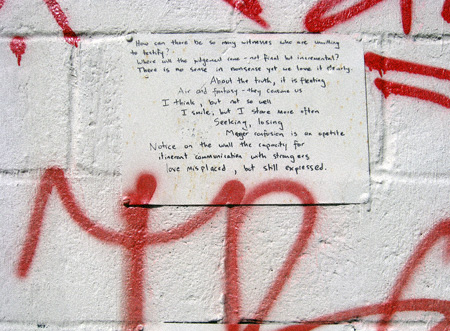 How can there be so many witnesses who are unwilling
to testify?
Where will the judgement come - not final but incremental?
There is no sense in nonsense yet we know it
About the truth, it is fleeting.
Air and fantasy - they consume us
I think, but not so well
I smile, but I stare more often
Seeking, losing
Meager confusion is an appetite
Notice on the wall the capacity for
itinerant communication with strangers
love misplaced, but still expressed.